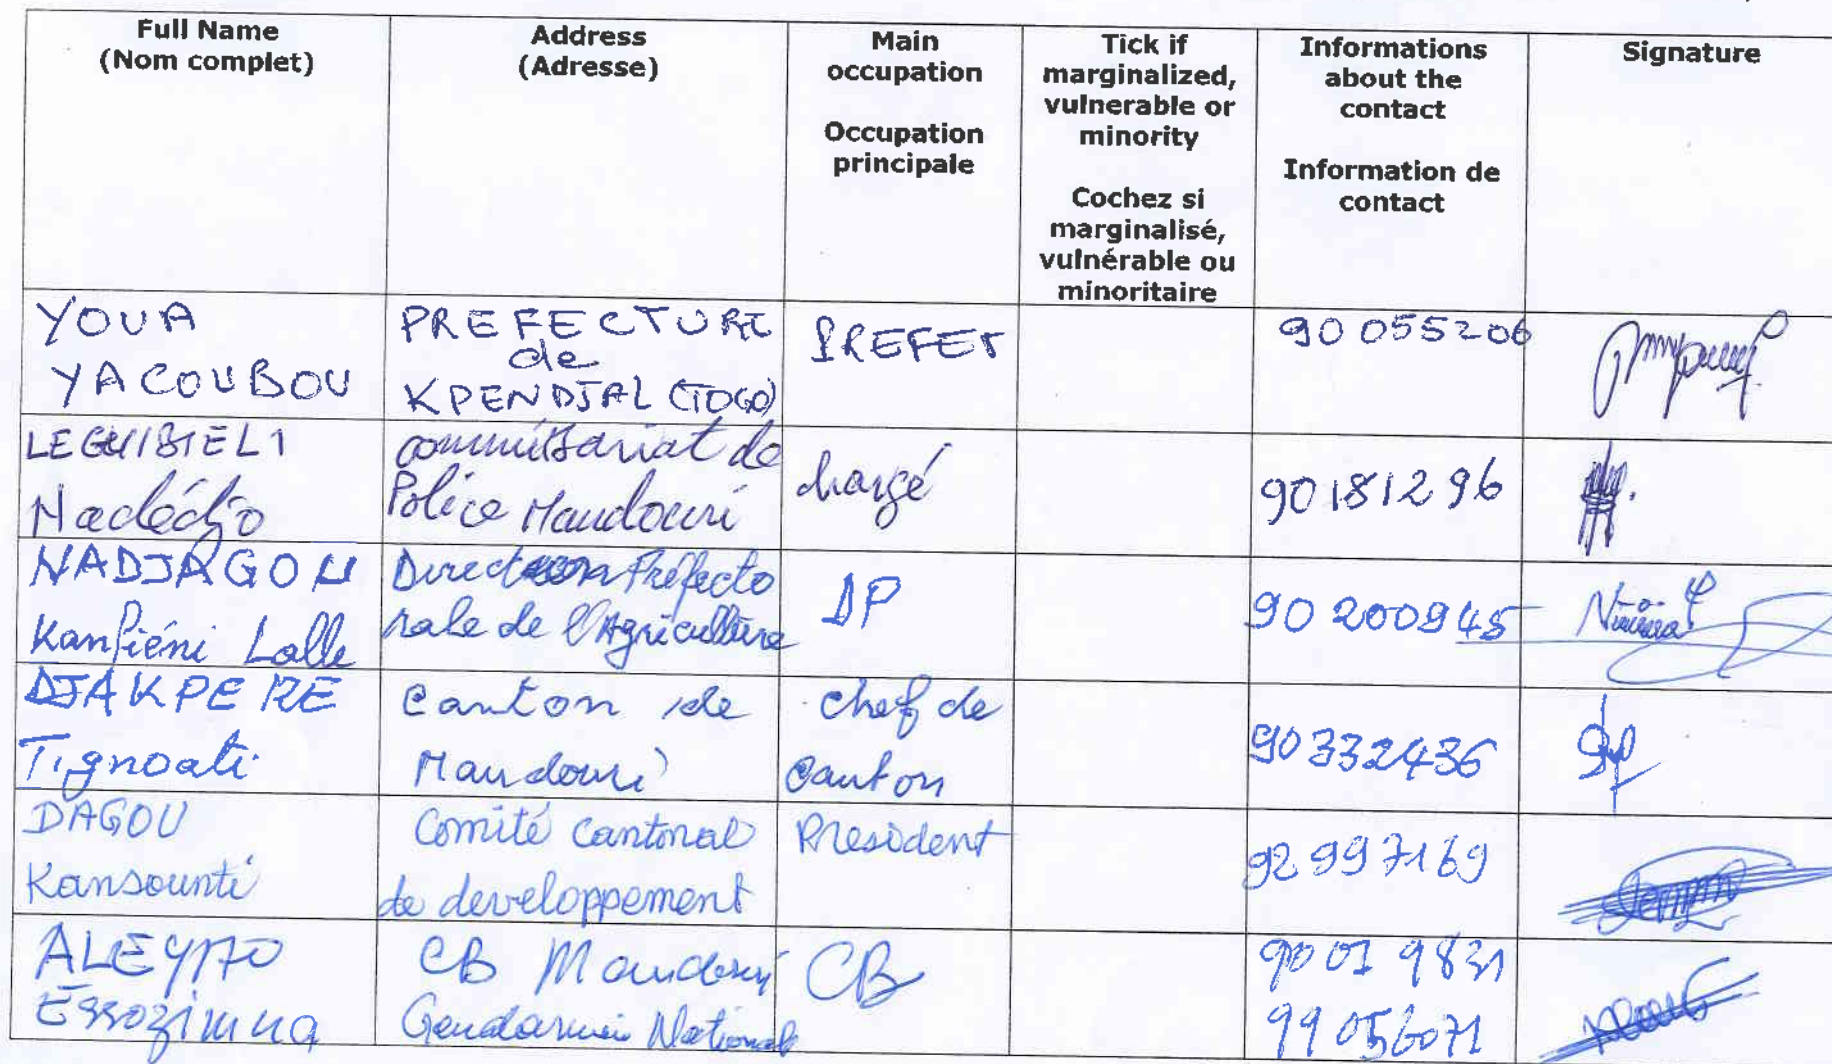 Full Name
(Nom complet)
Address
(Adresse)
Main
occupation
Occupation
principale
Tick if
marginalized,
vulnerable or
minority
Cochez si
marginalisé,
vulnérable ou
minoritaire
Informations
about the
contact
Information de
contact
Signature
YOUA
YACOUBOU
PREFECTURE
de
KPENDJAL (TOGO)
PREFET
90 055206
LEGUIBIELI
Nadédjo
commissariat de
Police Mandouri
chargé
90181296
NADJAGOU
Kanfiéni Lalle
Direction Préfecto
rale de l'Agriculture
DP
90 200945
DJAKPERE
Tignoati
Canton de
Mandouri
chef de
Canton
90332436
DAGOU
Kansounti
Comité Cantonal
de developpement
President
92997169
ALEYAO
Essozimna
CB Mandouri
Gendarmerie National
CB
9001 9831
99056071